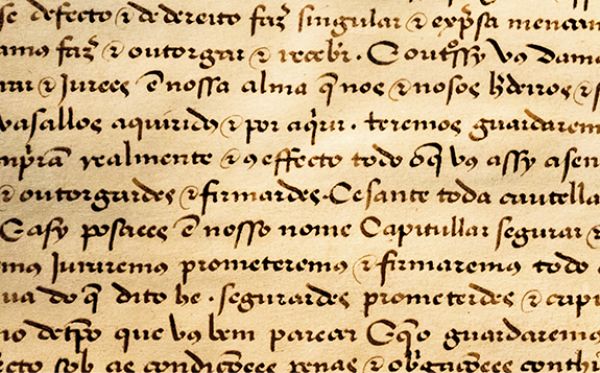 se defecto & de dereito faz̃ singular & exp̃sa mencam
amos faz̃ & outorgar & recebr̃. E outrossy vos damos
rar & Jurees ẽ nossa alma q̃ nos & nosos h̃deiros & s
vasallos aquiridos & por aq̃rir. teremos guardarem
nprirã realmente & cõ effecto todo o q̃ vos assy asen
& outorgardes & firmardes. Cesante toda cautella
E asy posaees ẽ nosso nome Capitullar segurar &
mos Juriremos prometeremos & firmaremos todo o
ua do q̃ dito he. segurardes prometerdes & capi
no detp̃o que vos bem parecer E q̃o guardaremos
recto sob as condicõees penas & obrigacõees conthi